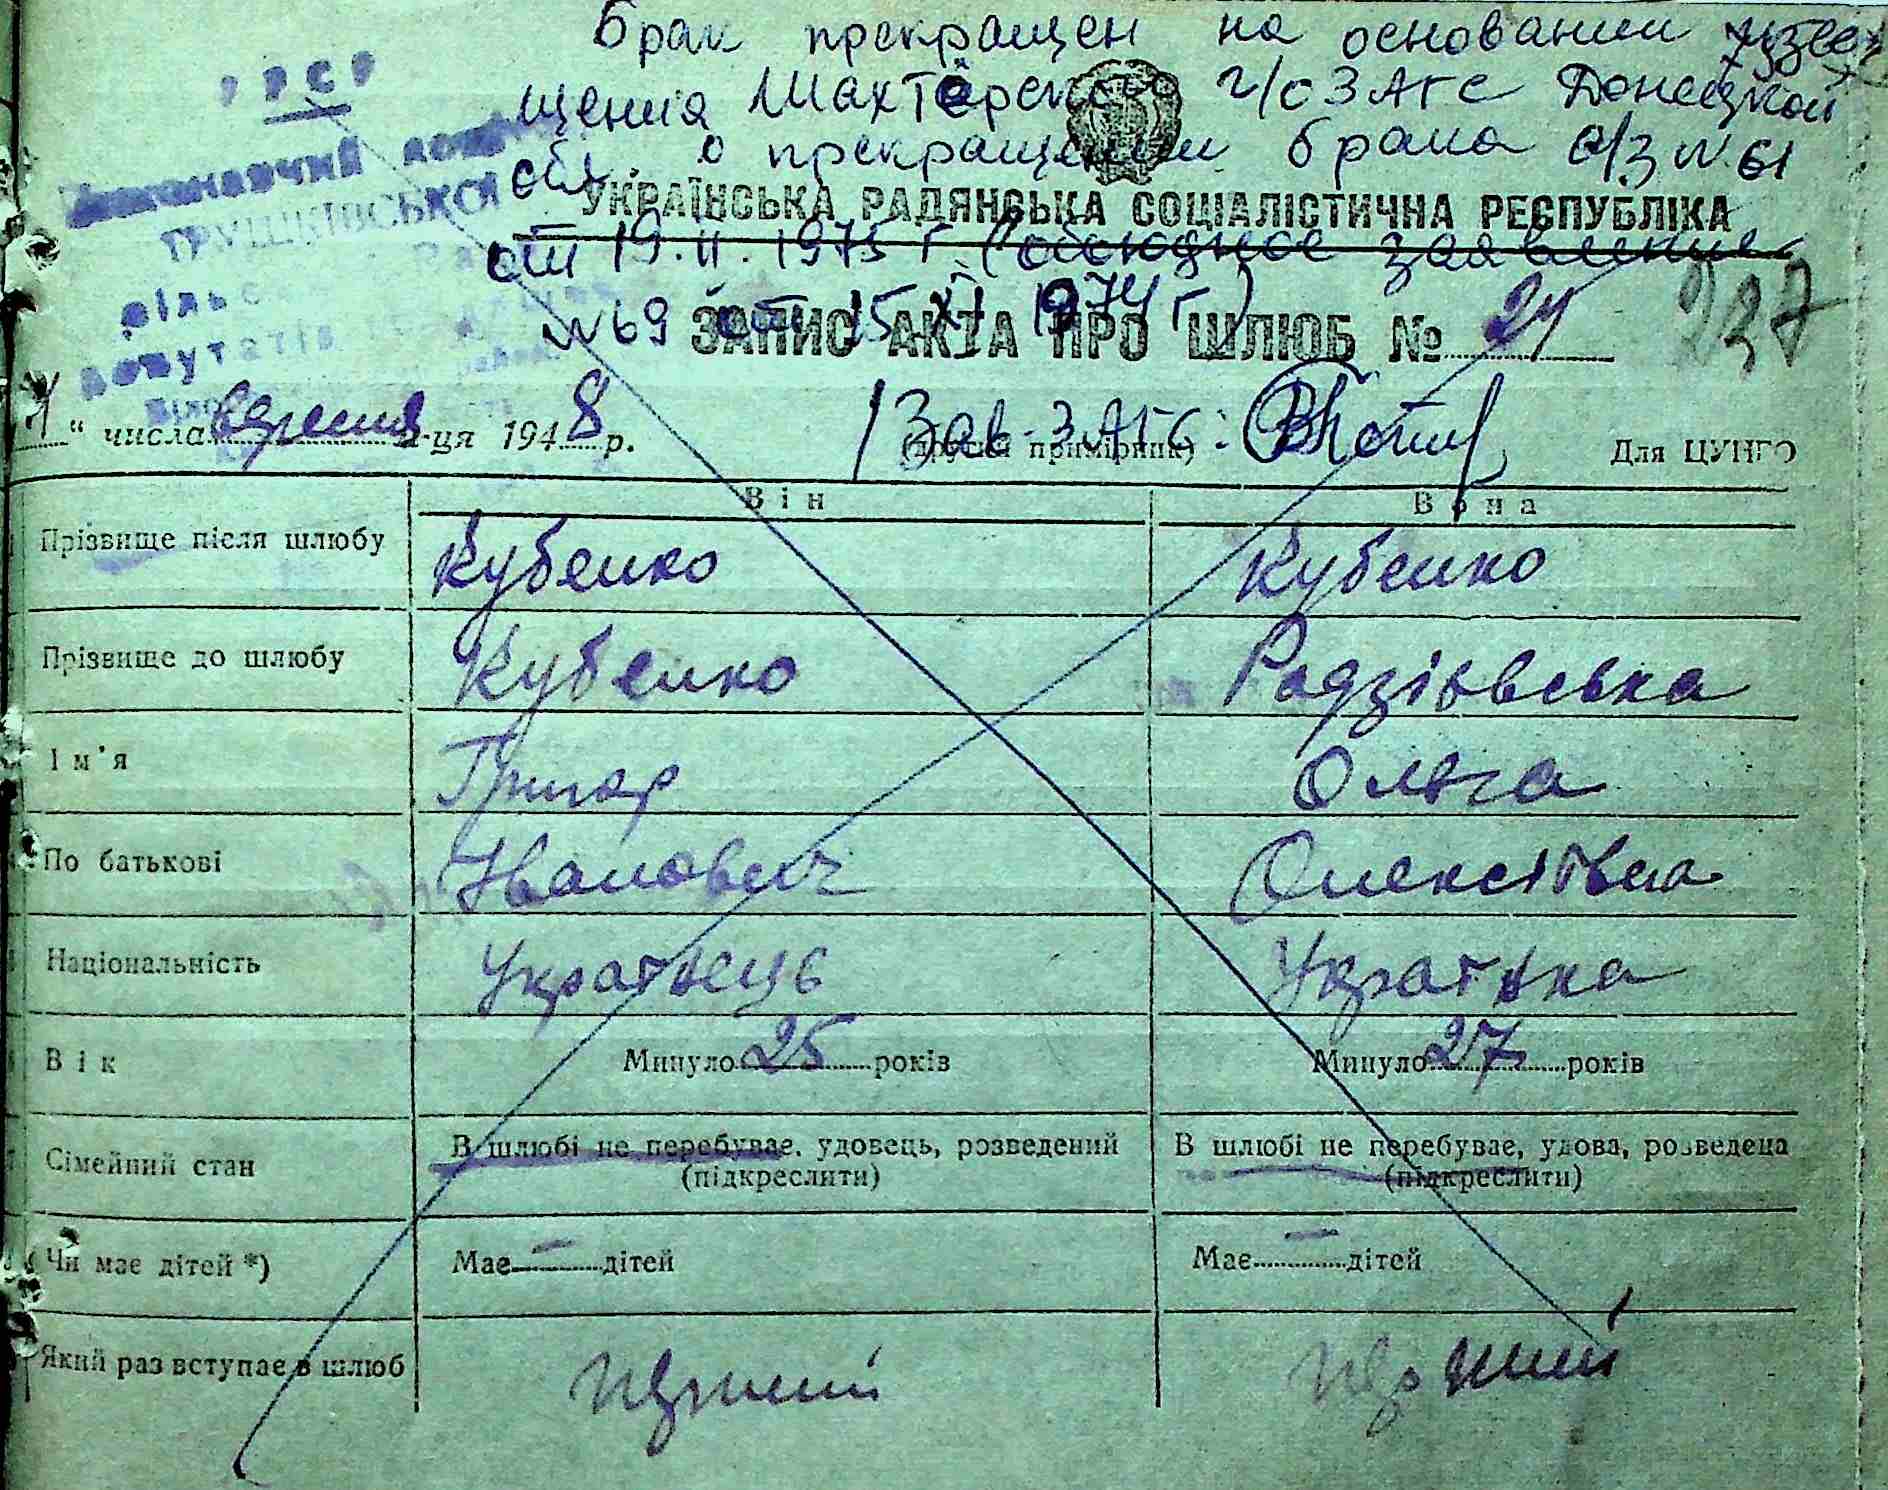 Брак прекращен на основании изве
щения Шахтёрского г/о ЗАГС Донецкой
обл. о прекращении брака а/з N 61
от 19.II.1975 г. (обоюдное заявление
N 69 от 15 XI 1974 г)
УРСР
Виконавчий комітет
ТРУШКІВСЬКОЇ
сільс
депутатів
УКРАЇНСЬКА РАДЯНСЬКА СОЦІАЛІСТИЧНА РЕСПУБЛІКА
ЗАПИС АКТА ПРО ШЛЮБ № 24 237
" числа вересня м-ця 1948 р.
/ Зав. ЗАГС:
(другий примірник) Для ЦУНГО
Він Вона
Прізвище після шлюбу Кубенко Кубенко
Прізвище до шлюбу Кубенко Радзіювська
Ім'я Григор Ольга
По батькові Иванович Олексіївна
Національність Українець Українка
Вік Минуло 25 років Минуло 27 років
Сімейний стан В шлюбі не перебуває, удовець, розведений В шлюбі не перебуває, удова, розведена
(підкреслити) (підкреслити)
Чи має дітей *) Має — дітей Має — дітей
Який раз вступає в шлюб перший перший